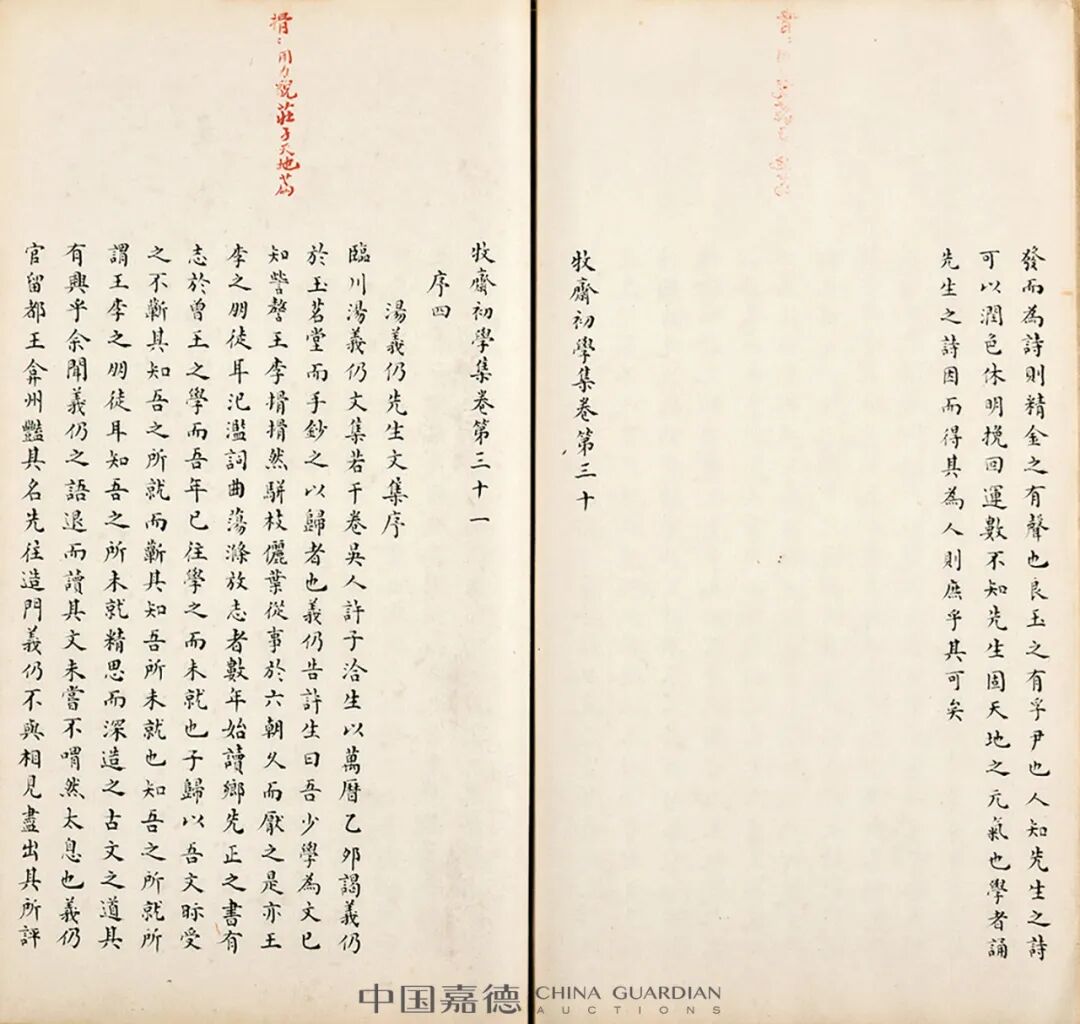 發而為詩則精金之有聲也良玉之有孚尹也人知先生之詩
可以潤色休明挽回運數不知先生固天地之元氣也學者誦
先生之詩因而得其為人則庶乎其可矣
牧齋初學集卷第三十
搰〻用力皃莊子天地篇
牧齋初學集卷第三十一
序四
湯義仍先生文集序
臨川湯義仍文集若干卷吳人許子洽生以萬曆乙夘謁義仍
於玉茗堂而手鈔之以歸者也義仍告許生曰吾少學為文已
知訾謷王李搰搰然駢枝儷葉從事於六朝久而厭之是亦王
李之朋徒耳汜濫詞曲蕩滌放志者數年始讀鄉先正之書有
志於曾王之學而吾年已往學之而未就也子歸以吾文眎受
之不蘄其知吾之所就而蘄其知吾所未就也知吾之所就所
謂王李之朋徒耳知吾之所未就精思而深造之古文之道其
有興乎余聞義仍之語退而讀其文未嘗不喟然太息也義仍
官留都王弇州豔其名先往造門義仍不與相見盡出其所評
中国嘉德 CHINA GUARDIAN
AUCTIONS